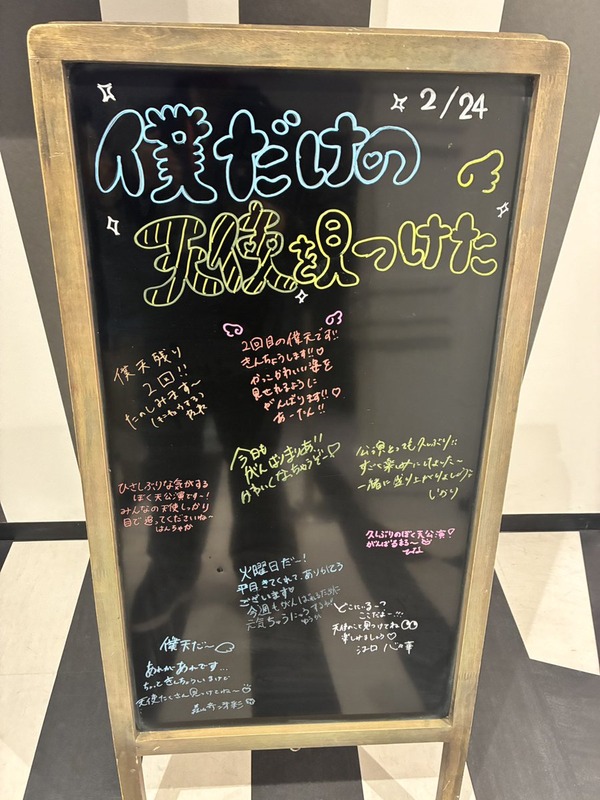 2/24
僕だけの
天使を見つけた
僕天残り
2回!!
たのしみます〜
2回目の僕天です!!
きんちょうします!!♡
かっこかわいい姿を
見せれるように
がんばります!!♡
あーたん!!
今日も
がんばりまりあ!!
公演とっても久しぶり
すごく楽しみにしてました〜
一緒に盛り上がりましょう
しおり
ひさしぶりな気がする
ぼく天公演です〜!
みんなの天使しっかり
目で追ってくださいね〜
はんちゃか
久しぶりのぼく天公演!
がんばるるる〜
ひな
火曜日だー!
平日きてくれて、ありがとう
ございます♡
今週もがんばれるために
元気ちゅうにゅうするぞ
どこにいるー?
ここだよー!!
天使のこと見つけてね
楽しみましょう♡
江口 心々華
僕天だ〜
あれがあれです...
ちょっときんちょうしいますけど
天使たくさん見つけてね〜